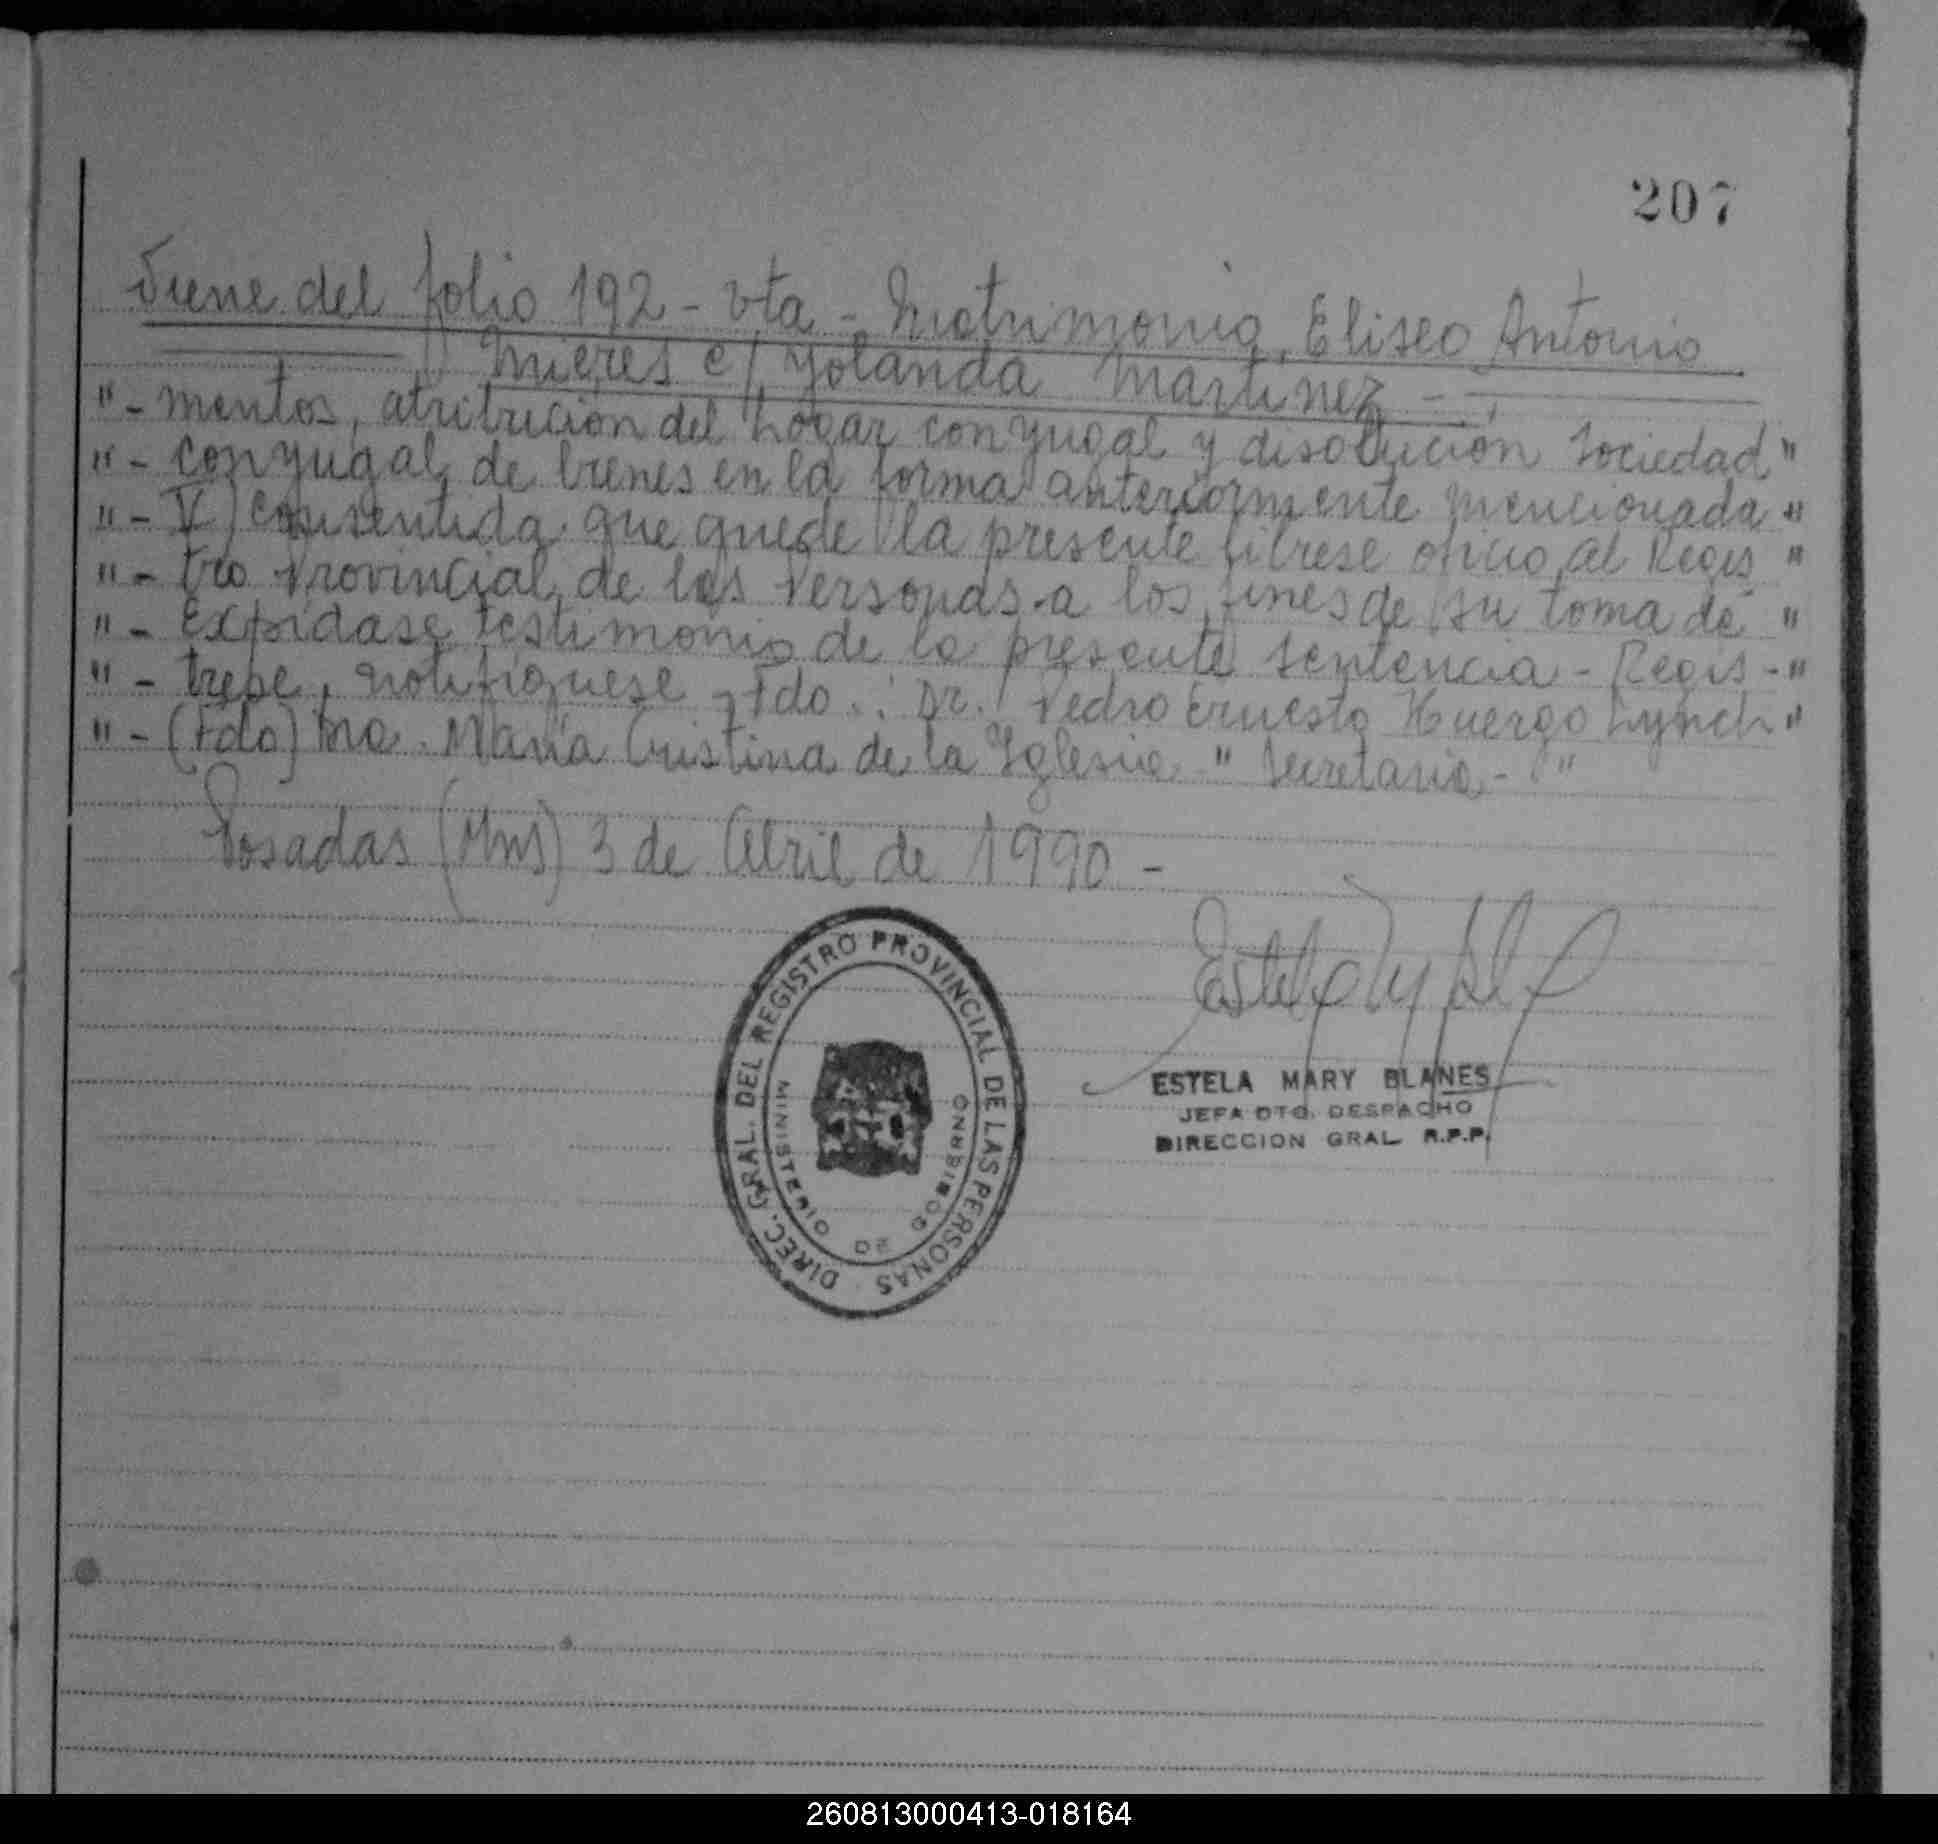 207
Viene del folio 192 - vta - Matrimonio, Eliseo Antonio
Mieres c/ Yolanda Martinez -
"- mentos, atribución del hogar conyugal y disolución sociedad"
"- conyugal de bienes en la forma anteriormente mencionada "
"- V) Consentida que quede la presente librese oficio al Regis "
"- tro Provincial de las Personas a los fines de su toma de "
"- Expídase testimonio de la presente sentencia - Regis - "
"- trese, notifíquese - Fdo.: Dr. Pedro Ernesto Huergo Lynch"
"- (Fdo) Dra. María Cristina de la Iglesia - " Secretaria - "
Posadas (Mns) 3 de Abril de 1990 -
DIREC. GRAL. DEL REGISTRO PROVINCIAL DE LAS PERSONAS
MINISTERIO DE GOBIERNO
ESTELA MARY BLANES
JEFA DTO. DESPACHO
DIRECCION GRAL R.P.P.
260813000413-018164